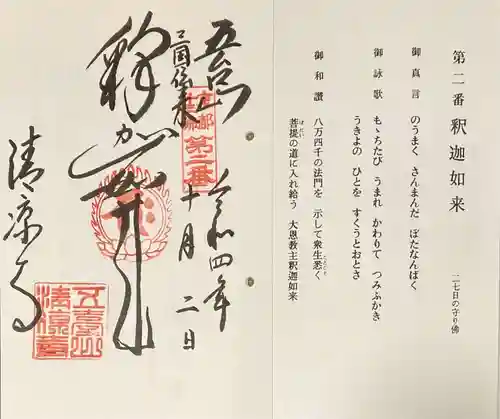 第二番 釈迦如来
二七日の守り佛
御真言 のうまく さんまんだ ぼたなんばく
御詠歌 もゝちたび うまれ かわりて つみふかき
うきよの ひとを すくうとおとさ
御和讃 八万四千の法門を 示して衆生悉く
ことごと
菩提の道に入れ給う 大恩教主釈迦如来
ぼだい
五台山
三国伝来
釈迦如来
清凉寺
第二番
令和四年
十月二日
五臺山
清凉寺